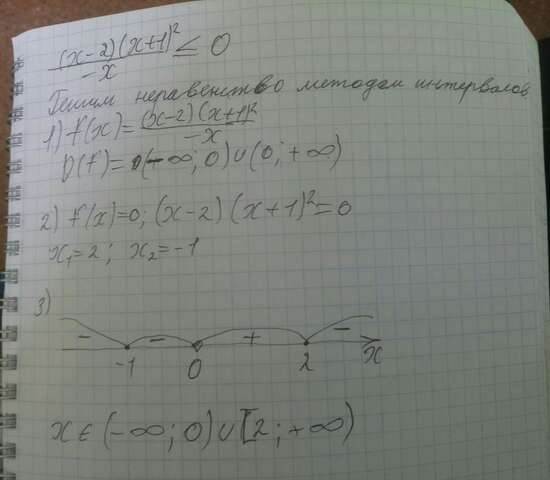 (x-2)(x+1)²/-x ≤ 0
Решим неравенство методом интервалов
1) f(x) = (x-2)(x+1)²/-x
D(f) = (-∞; 0) ∪ (0; +∞)
2) f(x)=0; (x-2)(x+1)²=0
x₁=2; x₂=-1
3)
- - + -
-1 0 2 x
x ∈ (-∞; 0) ∪ [2; +∞)